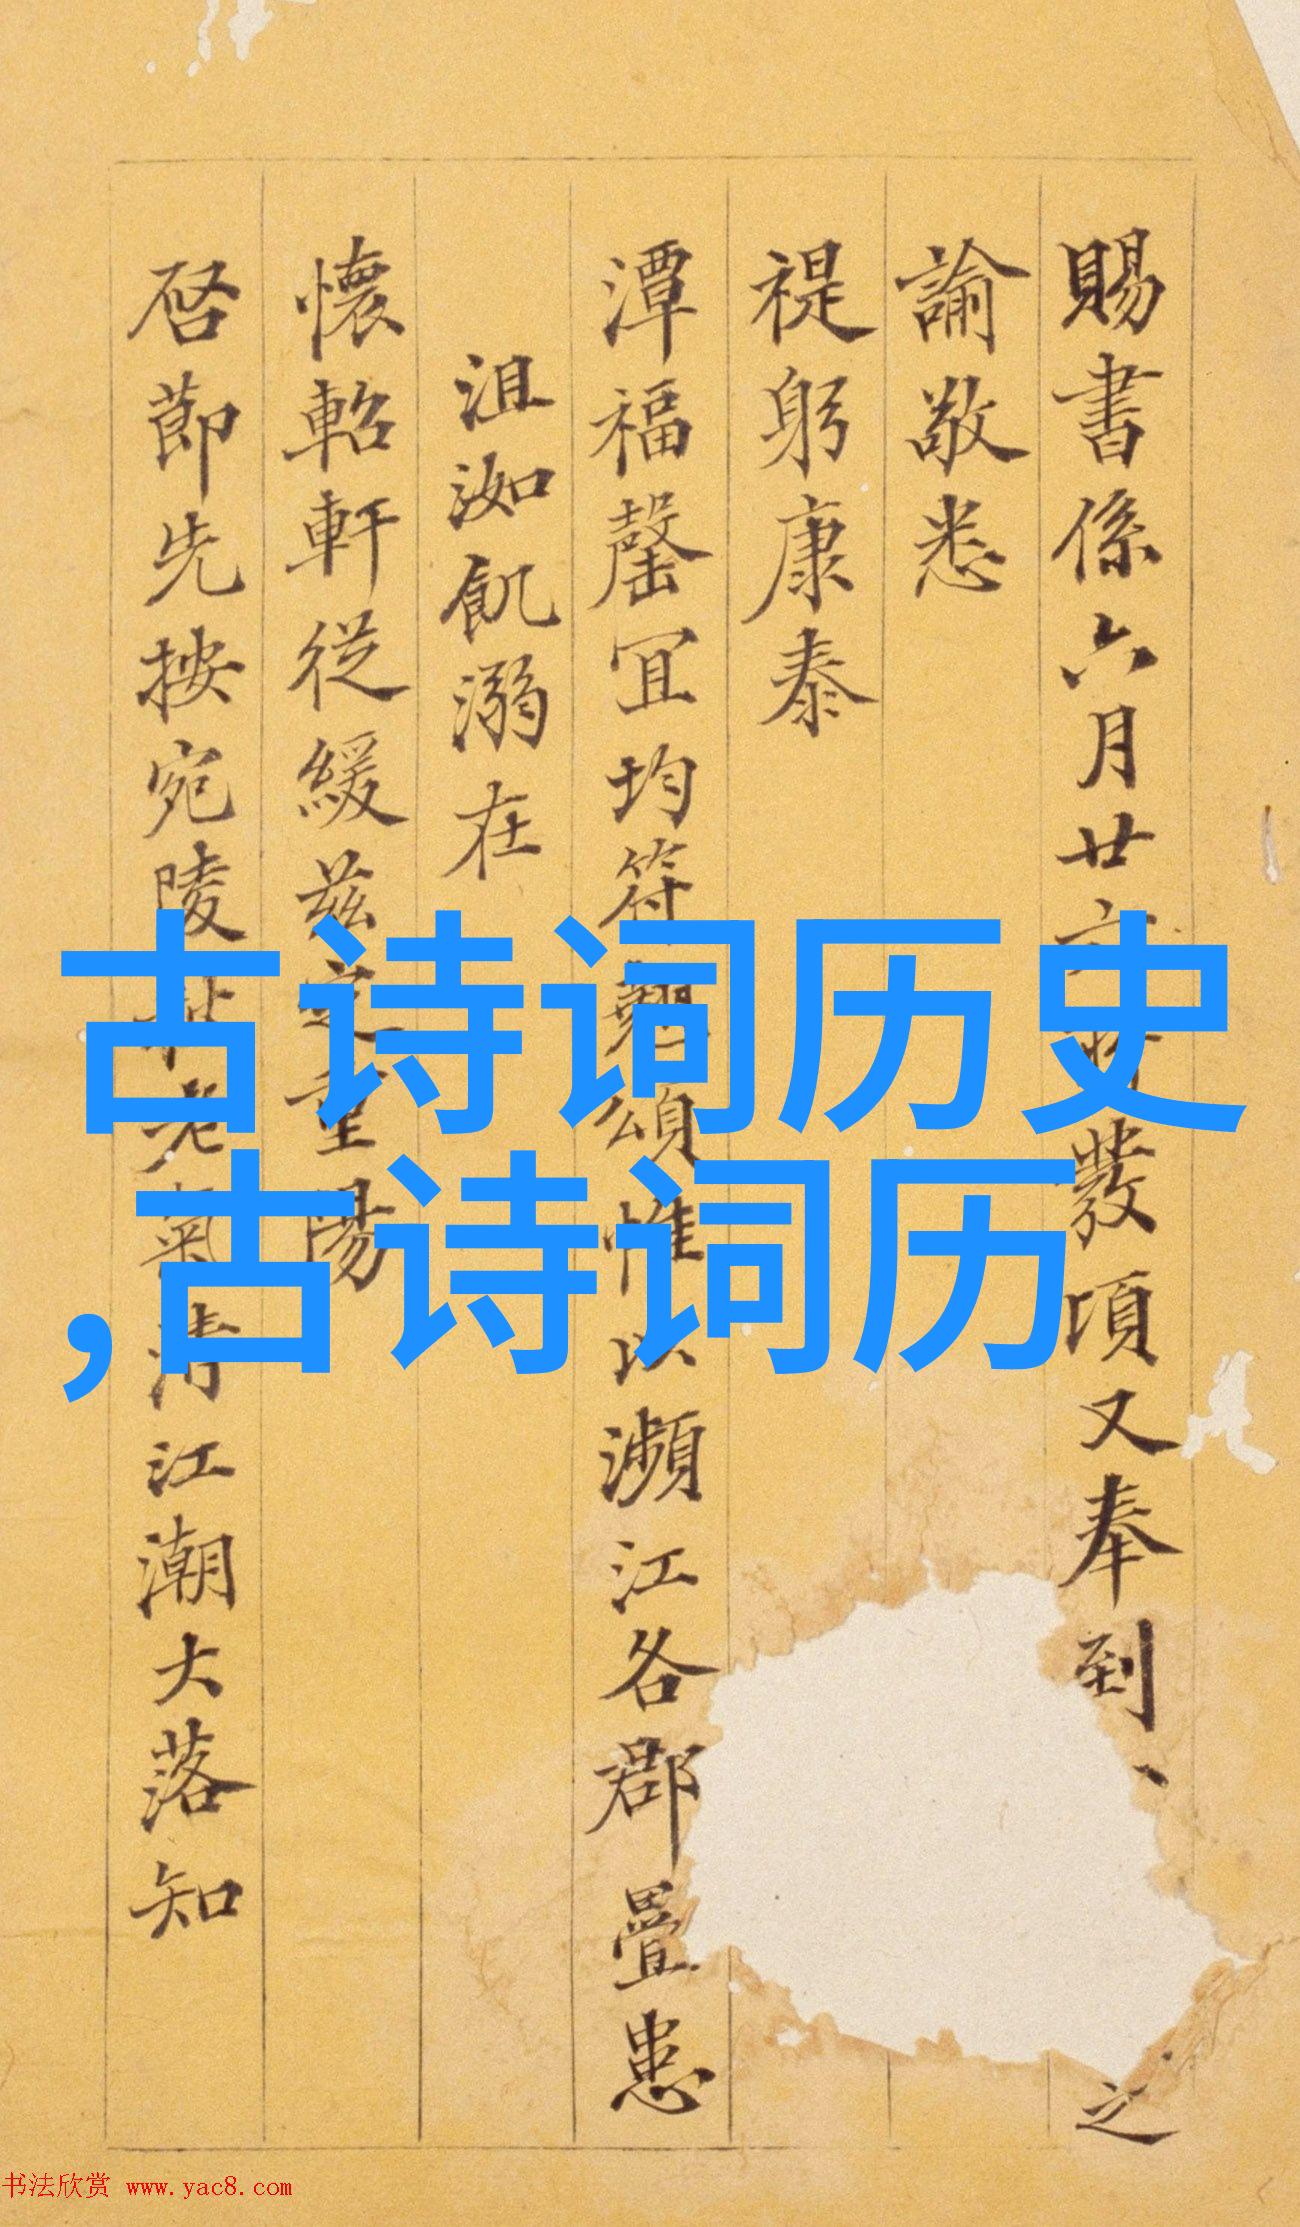 賜書係六月廿六發項又奉到之
諭敬悉
禔躬康泰
潭福罄宜均符頌惟以瀕江各郡疊患
沮洳飢溺在
懷軺軒從緩茲定重陽
啓節先按宛陵老氣清江潮大落知
古诗词历史
,古诗词历
书法欣赏 www.yac8.com